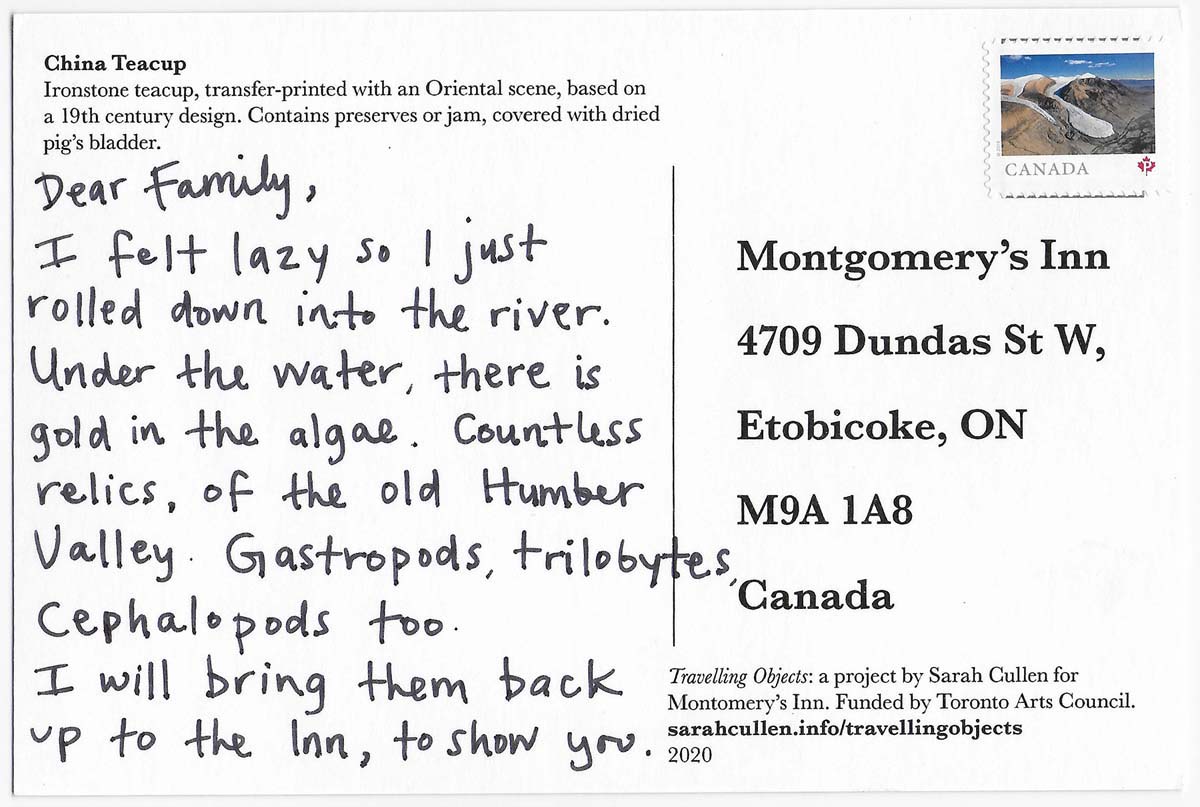 China Teacup
Ironstone teacup, transfer-printed with an Oriental scene, based on
a 19th century design. Contains preserves or jam, covered with dried
pig's bladder.
Dear Family,
I felt lazy so I just
rolled down into the river.
Under the water, there is
gold in the algae. Countless
relics, of the old Humber
Valley. Gastropods, trilobytes,
Cephalopods too.
I will bring them back
up to the Inn, to show you.
CANADA
P
Montgomery's Inn
4709 Dundas St W,
Etobicoke, ON
M9A 1A8
Canada
Travelling Objects: a project by Sarah Cullen for
Montomery's Inn. Funded by Toronto Arts Council.
sarahcullen.info/travellingobjects
2020